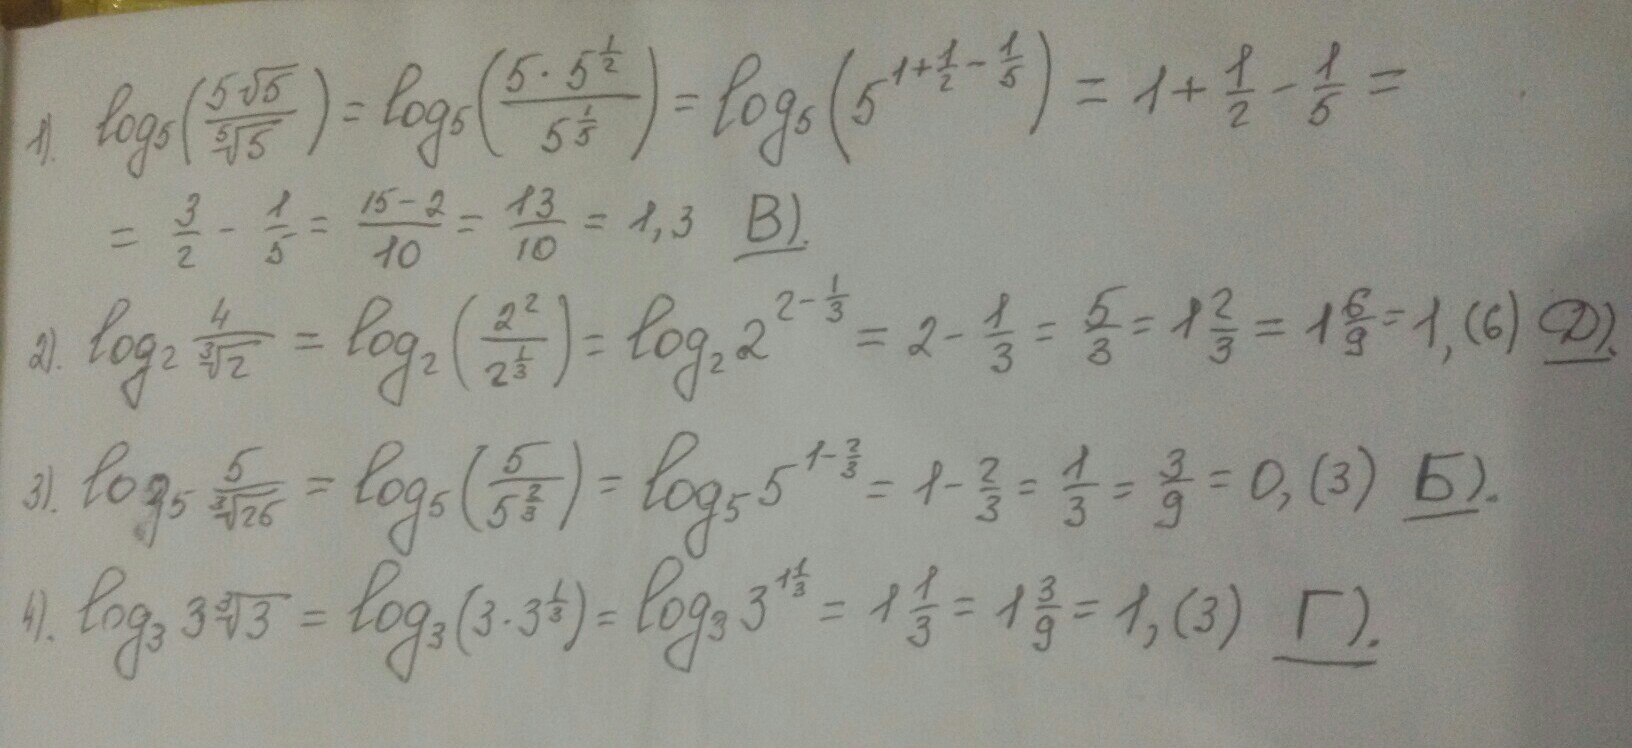 1). log₅(5√5/⁵√5) = log₅(5·5^(1/2)/5^(1/5)) = log₅(5^(1+1/2-1/5)) = 1+1/2-1/5 =
= 3/2 - 1/5 = (15-2)/10 = 13/10 = 1,3 В).
2). log₂ 4/³√2 = log₂(2²/2^(1/3)) = log₂2^(2-1/3) = 2-1/3 = 5/3 = 1 2/3 = 1 6/9 = 1,(6) Д).
3). log₅ 5/³√25 = log₅(5/5^(2/3)) = log₅5^(1-2/3) = 1-2/3 = 1/3 = 3/9 = 0,(3) Б).
4). log₃3³√3 = log₃(3·3^(1/3)) = log₃3^(1 1/3) = 1 1/3 = 1 3/9 = 1,(3) Г).